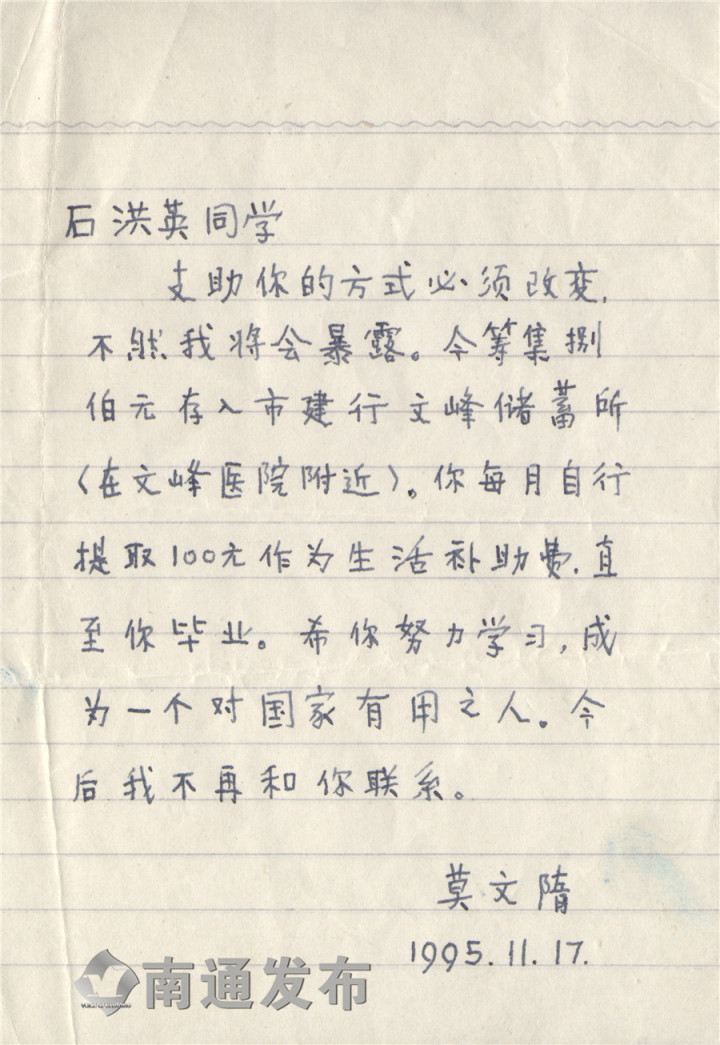 石洪英同学
支助你的方式必须改变，
不然我将会暴露。今筹集捌
佰元存入市建行文峰储蓄所
（在文峰医院附近）。你每月自行
提取100元作为生活补助费，直
至你毕业。希你努力学习，成
为一个对国家有用之人。今
后我不再和你联系。
莫文隋
1995.11.17.
南通发布